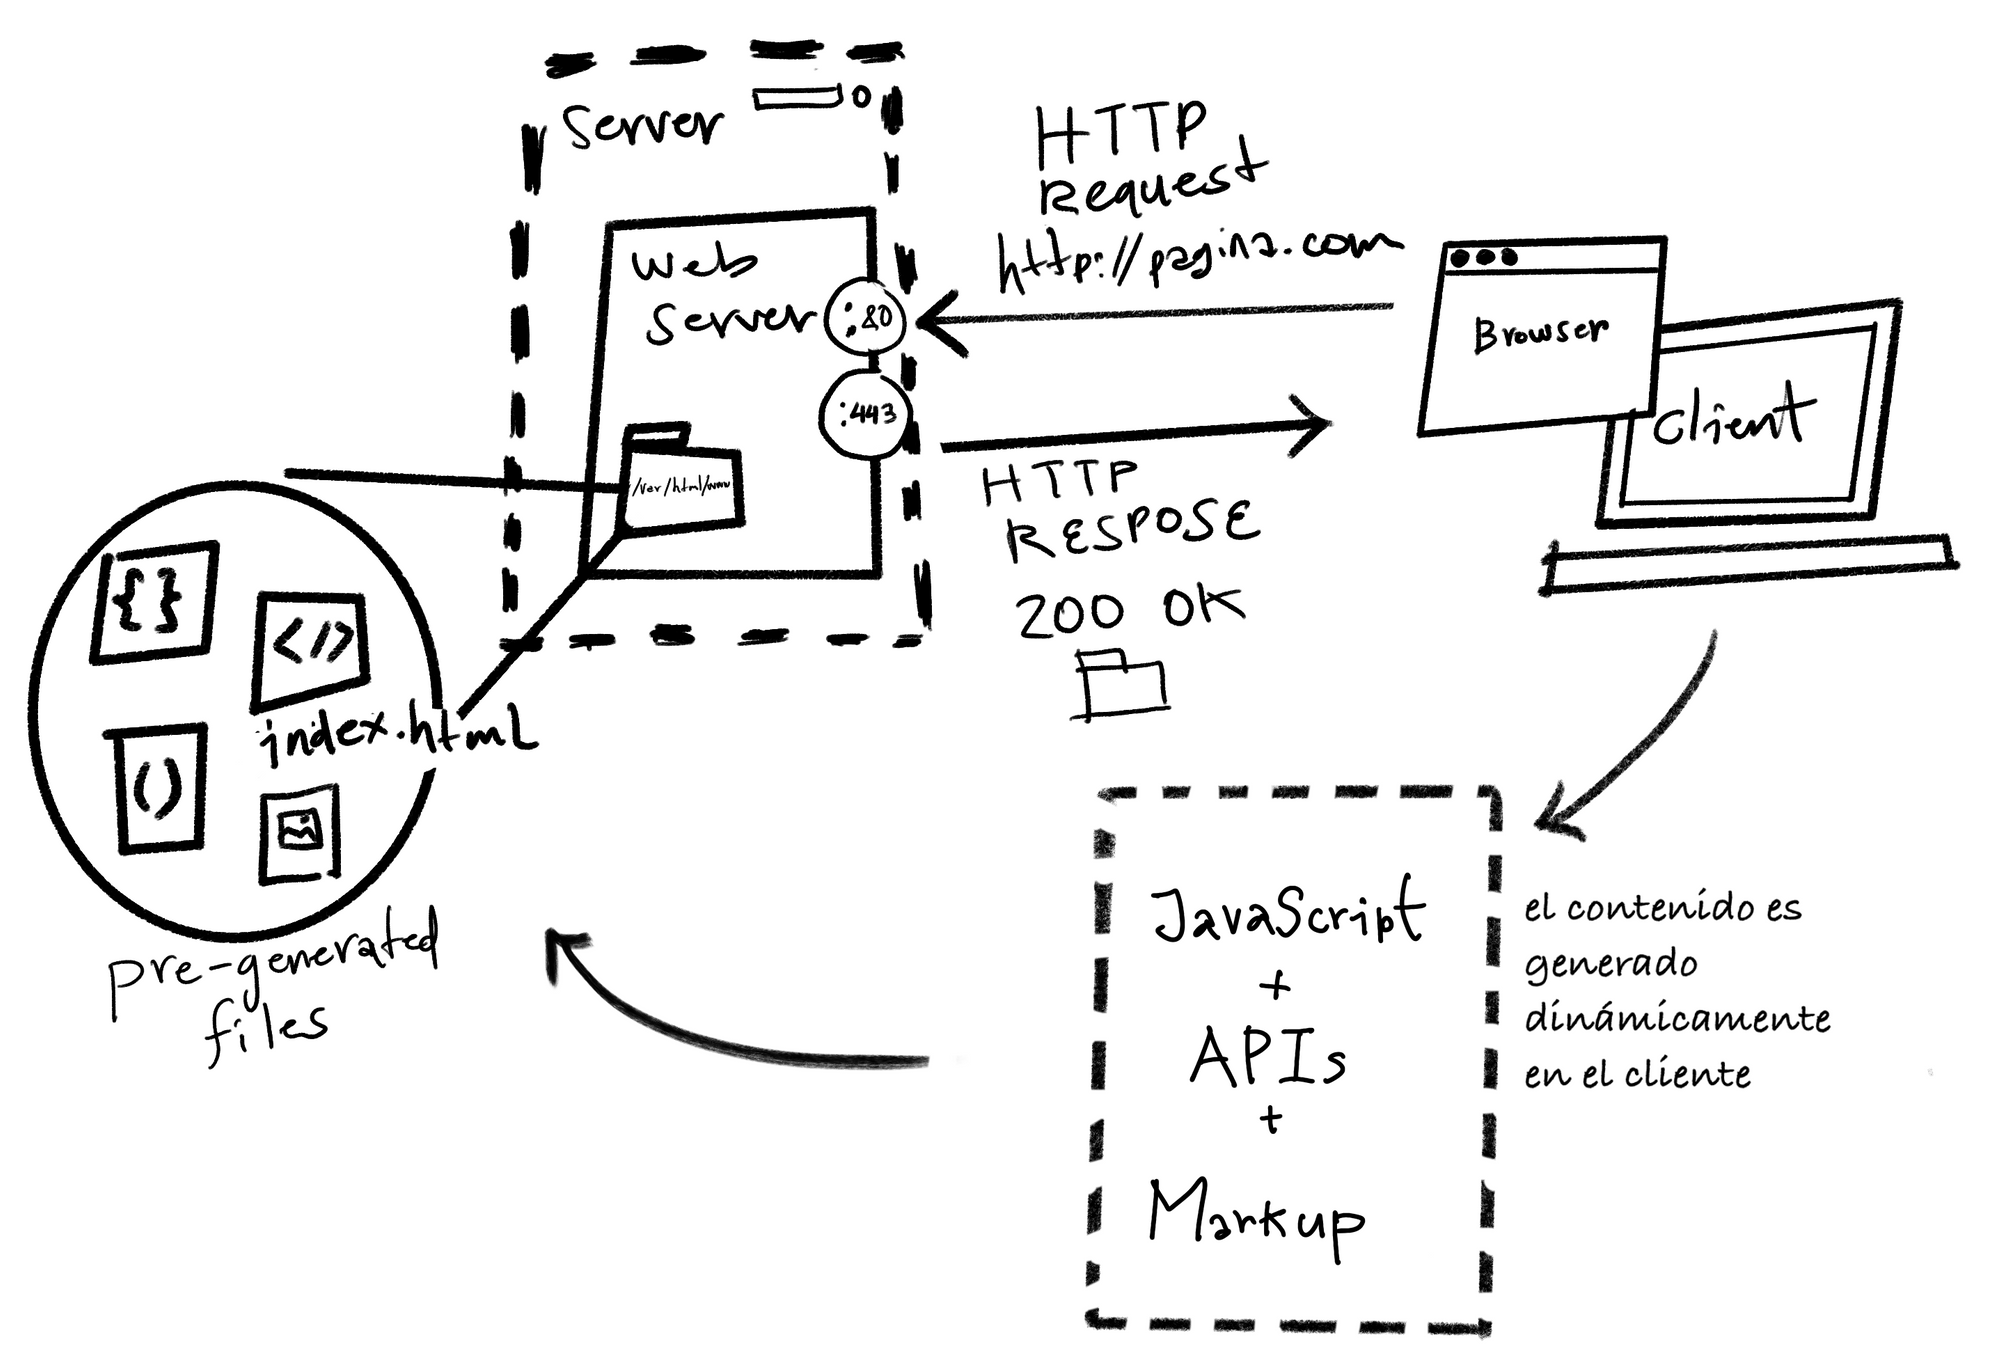 Server
Web
Server
:80
:443
/var/html/www
HTTP
Request
http://pagina.com
Browser
Client
HTTP
RESPOSE
200 OK
{ }
</>
index.html
( )
pre-generated
files
JavaScript
+
APIs
+
Markup
el contenido es
generado
dinámicamente
en el cliente